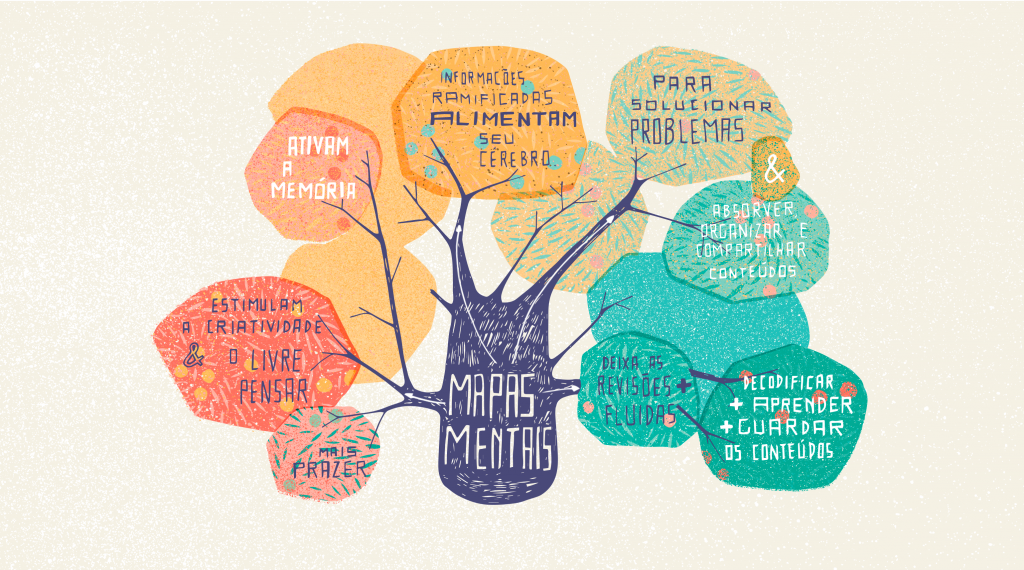 ATIVAM
A
MEMÓRIA
INFORMAÇÕES
RAMIFICADAS
ALIMENTAM
SEU
CÉREBRO.
PARA
SOLUCIONAR
PROBLEMAS
&
ABSORVER,
ORGANIZAR E
COMPARTILHAR
CONTEÚDOS
ESTIMULAM
A CRIATIVIDADE
& O LIVRE
PENSAR
MAIS
PRAZER
MAPAS
MENTAIS
DEIXA AS
REVISÕES +
FLUIDAS
DECODIFICAR
+ APRENDER
+ GUARDAR
OS CONTEÚDOS